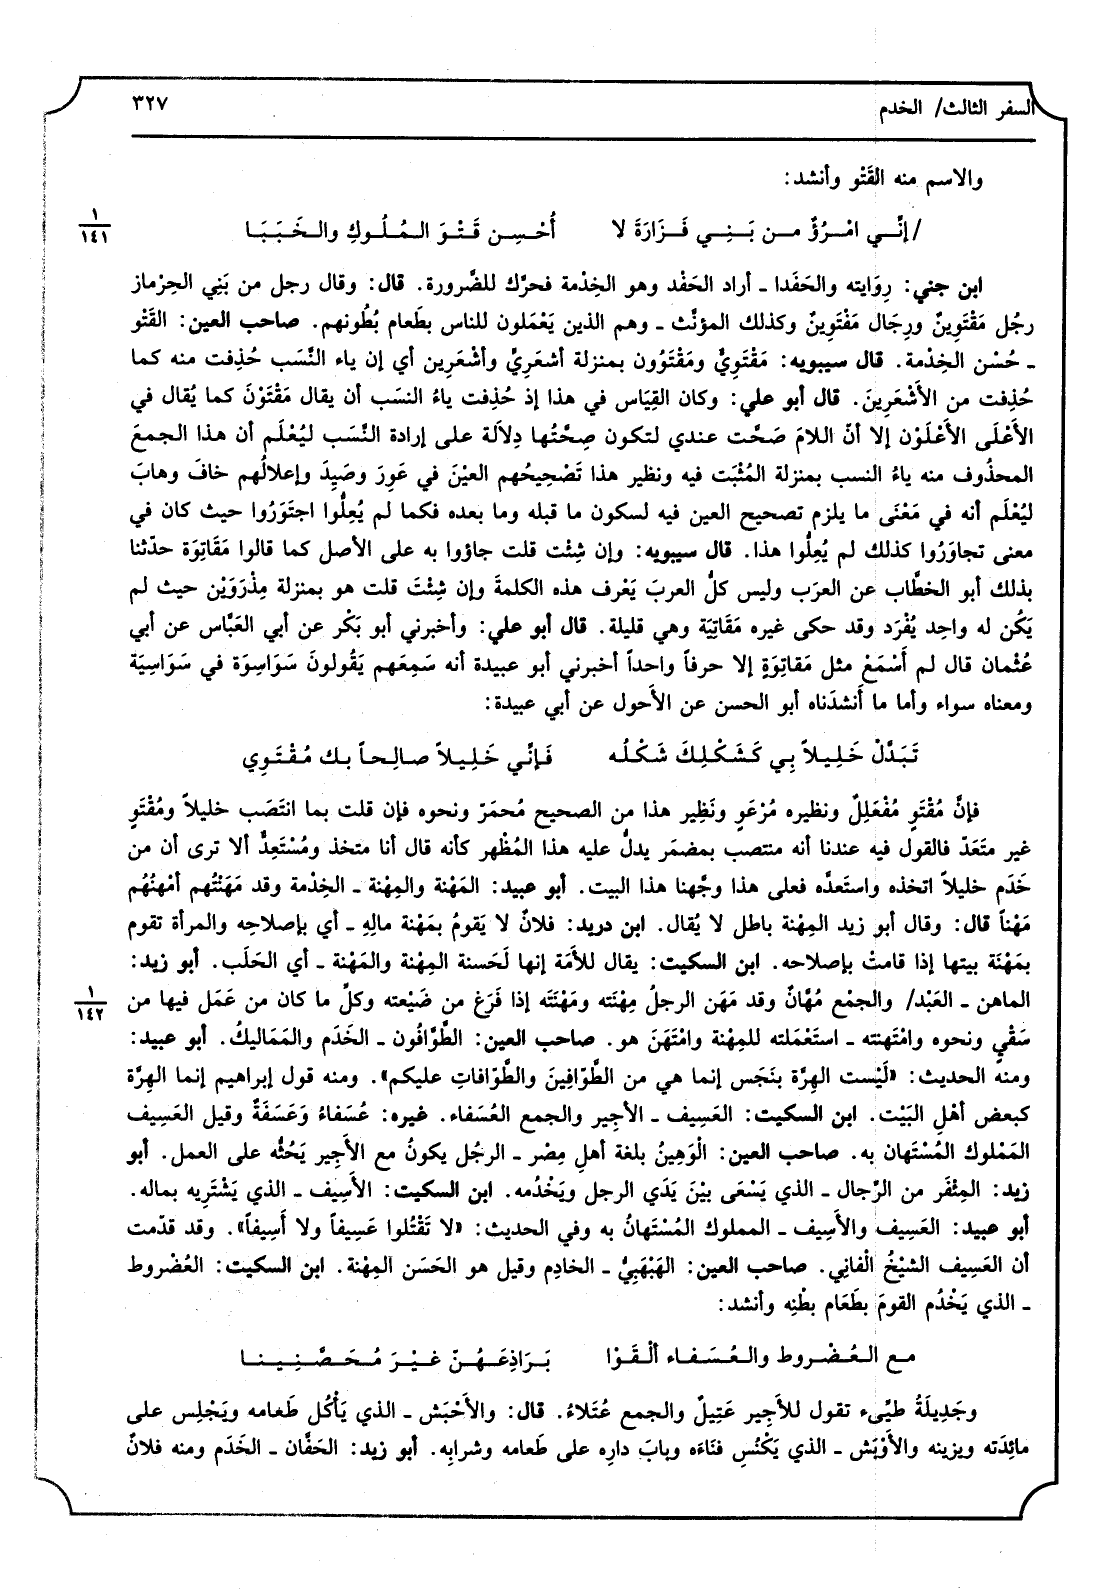 السفر الثالث/ الخدم ٣٢٧
والاسم منه القَتْو وأنشد:
/إنَّـي امْـرُؤٌ مـن بَـنِـي فَـزَارَةَ لا أُحْـسِـن قَـتْـوَ الـمُـلُوكِ والـخَـبَـبَـا
١
١٤١
ابن جني: رِوَايته والحَفَدا ـ أراد الحَفْد وهو الخِدْمة فحرَّك للضَّرورة. قال: وقال رجل من بَنِي الحِرْماز
رجُل مَقْتَوِينٌ ورِجَال مَقْتَوِينٌ وكذلك المؤنَّث ـ وهم الذين يَعْمَلون للناس بطَعام بُطُونهم. صاحب العين: القَتْو
ـ حُسْن الخِدْمة. قال سيبويه: مَقْتَوِيٌّ ومَقْتَوُون بمنزلة أشعَرِيٍّ وأشْعَرِين أي إن ياء النَّسَب حُذِفت منه كما
حُذِفت من الأَشْعَرِينَ. قال أبو علي: وكان القِيَاس في هذا إذ حُذِفت ياءُ النسَب أن يقال مَقْتَوْنَ كما يُقال في
الأَعْلَى الأَعْلَوْن إلا أنّ اللامَ صَحَّت عندي لتكون صِحَّتُها دِلاَلة على إرادة النَّسَب ليُعْلَم أن هذا الجمعَ
المحذُوف منه ياءُ النسب بمنزلة المُثْبَت فيه ونظير هذا تَصْحِيحُهم العيْنَ في عَوِرَ وصَيِدَ وإعلالُهم خافَ وهابَ
ليُعْلَم أنه في مَعْنَى ما يلزم تصحيح العين فيه لسكون ما قبله وما بعده فكما لم يُعِلُّوا اجتَوَرُوا حيث كان في
معنى تجاوَرُوا كذلك لم يُعِلُّوا هذا. قال سيبويه: وإن شِئْت قلت جاؤوا به على الأصل كما قالوا مَقَاتِوَة حدّثنا
بذلك أبو الخطَّاب عن العرَب وليس كلُّ العربَ يَعْرف هذه الكلمةَ وإن شِئْتَ قلت هو بمنزلة مِذْرَوَيْن حيث لم
يَكُن له واحِد يُفْرَد وقد حكى غيره مَقَاتِيَة وهي قليلة. قال أبو علي: وأخبرني أبو بَكْر عن أبي العَبَّاس عن أبي
عُثْمان قال لم أَسْمَعْ مثل مَقاتِوَةٍ إلا حرفاً واحداً أخبرني أبو عبيدة أنه سَمِعَهم يَقُولونَ سَوَاسِوَة في سَوَاسِيَة
ومعناه سواء وأما ما أَنشدَناه أبو الحسن عن الأَحول عن أبي عبيدة:
تَبَدَّلْ خَلِـيلاً بِي كَشَكْلِكَ شَكْلُه فَإنَّي خَلِيلاً صالِحاً بك مُقْتَوِي
فإنَّ مُقْتَوٍ مُفْعَلِلٌ ونظيره مُرْعَوٍ ونَظِير هذا من الصحيح مُحمَرّ ونحوه فإن قلت بما انتَصَب خليلاً ومُقْتَوٍ
غير متَعَدّ فالقول فيه عندنا أنه منتصب بمضمَر يدلُّ عليه هذا المُظْهر كأنه قال أنا متخذ ومُسْتَعِدٌّ ألا ترى أن من
خَدَم خليلاً اتخذه واستَعدَّه فعلى هذا وجَّهنا هذا البيت. أبو عبيد: المَهْنة والمِهْنة ـ الخِدْمة وقد مَهَنْتُهم أَمْهنُهُم
مَهْناً قال: وقال أبو زيد المِهْنة باطل لا يُقال. ابن دريد: فلانٌ لا يَقومُ بمَهْنة مالِهِ ـ أي بإصلاحِه والمرأة تقوم
بمَهْنَة بيتها إذا قامتْ بإصلاحه. ابن السكيت: يقال للأَمَة إنها لَحَسنة المِهْنة والمَهْنة ـ أي الحَلَب. أبو زيد:
الماهن ـ العَبْد/ والجمْع مُهَّانٌ وقد مَهَن الرجلُ مِهْنَته ومَهْنَتَه إذا فَرَغ من ضَيْعته وكلِّ ما كان من عَمَل فيها من
١
١٤٢
سَقْيٍ ونحوه وامْتَهنته ـ استَعْملته للمِهْنة وامْتَهَنَ هو. صاحب العين: الطَّوَّافُون ـ الخَدَم والمَمَاليكُ. أبو عبيد:
ومنه الحديث: «لَيْست الهِرَّة بنَجَس إنما هي من الطَّوَّافِينَ والطَّوَّافاتِ عليكم». ومنه قول إبراهيم إنما الهِرَّة
كبعض أهْلِ البَيْت. ابن السكيت: العَسِيف ـ الأَجير والجمع العُسَفاء. غيره: عُسَفاءُ وَعَسَفَةٌ وقيل العَسِيف
المَمْلوك المُسْتَهان به. صاحب العين: الْوَهِينُ بلغة أهلِ مِصْر ـ الرجُل يكونُ مع الأَجير يَحُثُّه على العمل. أبو
زيد: المِثْفَر من الرِّجال ـ الذي يَسْعَى بيْنَ يَدَي الرجل ويَخْدُمه. ابن السكيت: الأَسِيف ـ الذي يَشْتَرِيه بماله.
أبو عبيد: العَسِيف والأَسِيف ـ المملوك المُسْتَهانُ به وفي الحديث: «لا تَقْتُلوا عَسِيفاً ولا أَسِيفاً». وقد قدّمت
أن العَسِيف الشيْخُ الْفانِي. صاحب العين: الهَبْهَبِيُّ ـ الخادِم وقيل هو الحَسَن المِهْنة. ابن السكيت: العُضْروط
ـ الذي يَخْدُم القومَ بطَعَام بطْنِه وأنشد:
مـع الـعُـضْـروط والـعُـسَـفـاء ألْـقَـوْا بَـرَاذِعَـهُـنّ غيْـرَ مُـحَـصَّـنِـيـنـا
وجَدِيلَةُ طيِّىء تقول للأَجير عَتِيلٌ والجمع عُتَلاءُ. قال: والأَحْبَش ـ الذي يَأْكُل طَعامه ويَجْلِس على
مائِدَته ويزينه والأَرْبَش ـ الذي يَكْنُسِ فنَاءَه وبابَ دارِه على طَعامه وشرابِه. أبو زيد: الحَفَّان ـ الخَدَم ومنه فلانٌ